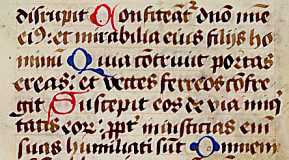 disrupit Confiteãt᷑ dño mie
eiꝰ: et mirabilia eius filijs ho
minũ Quia cõtriuit portas
ereas: et vectes ferreos cõfre
git Suscepit eos de via iniq
tatis eoꝝ: ꝓpt iniusticias eni
suas humiliati sũt Omnem